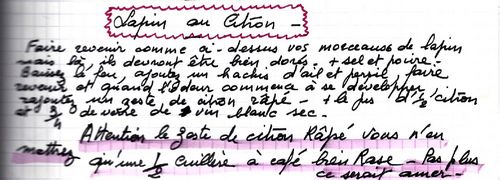 Lapin au Citron -
Faire revenir comme ci-dessus vos morceaux de lapin
mais là, ils devront être bien dorés. + sel et poivre.
Baissez le feu, ajoutez un hachis d'ail et persil faire
revenir et quand l'odeur commence à se développer
rajoutez un zeste de citron râpé - + le jus d'1/2 citron
et 3/4 de verre de vin blanc sec.
Attention le Zeste de citron Râpé vous n'en
mettrez qu'une 1/2 cuillère à café bien Rase - Pas plus
ce serait amer -